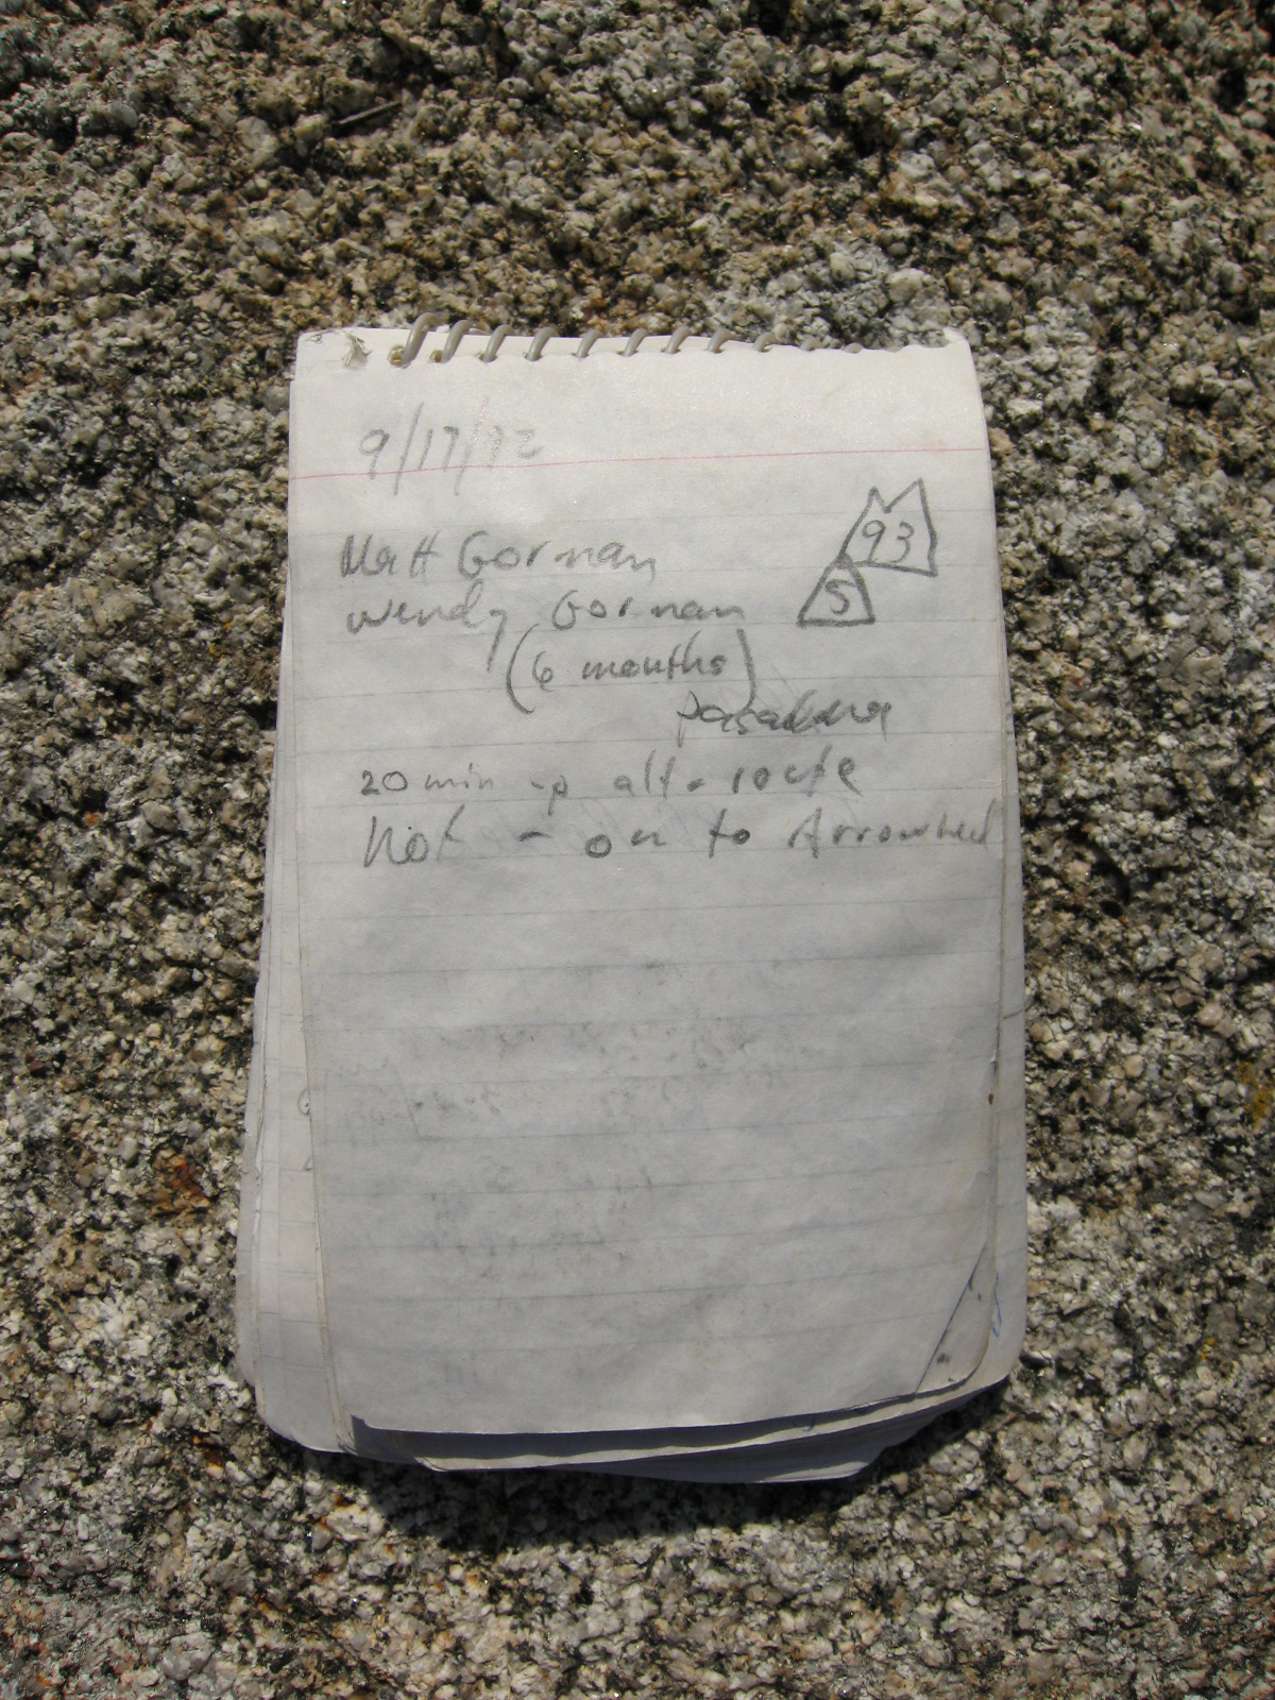 9/17/92
Matt Gorman
93
Wendy Gorman
5
(6 months)
Pasadena
20 min up alt. route
Hot - on to Arrowhead